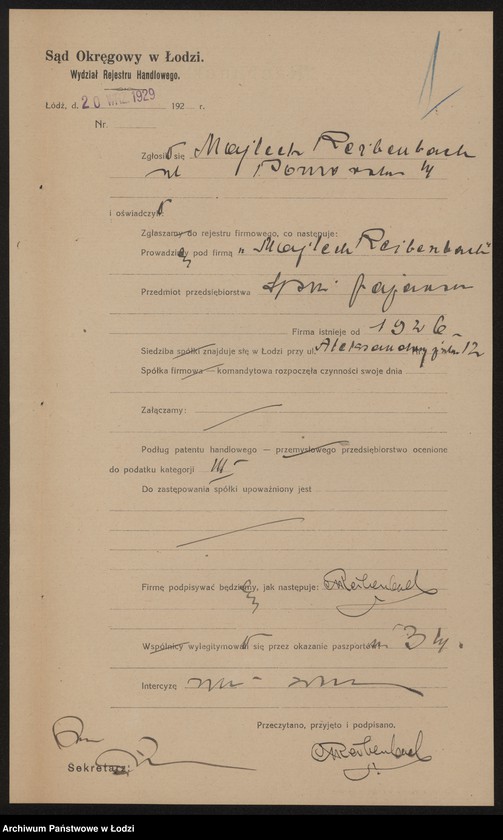 Sąd Okręgowy w Łodzi.
Wydział Rejestru Handlowego.
Łódź, d. 20 1929 192 r.
Nr.
Zgłosił się Majlech Rejbenbach
ul Pomorska 4
i oświadczył:
Zgłaszamy do rejestru firmowego, co następuje:
Prowadzimy pod firmą „Majlech Rejbenbach"
Przedmiot przedsiębiorstwa fajansu
Firma istnieje od 1926
Siedziba spółki znajduje się w Łodzi przy ul. 12
Spółka firmowa — komandytowa rozpoczęła czynności swoje dnia
Załączamy:
Podług patentu handlowego — przemysłowego przedsiębiorstwo ocenione
do podatku kategorji III
Do zastępowania spółki upoważniony jest
Firmę podpisywać będziemy, jak następuje: MRejbenbach
Wspólnicy wylegitymowali się przez okazanie paszportów
Intercyzę
Przeczytano, przyjęto i podpisano.
MRejbenbach
Sekretarz:
Archiwum Państwowe w Łodzi